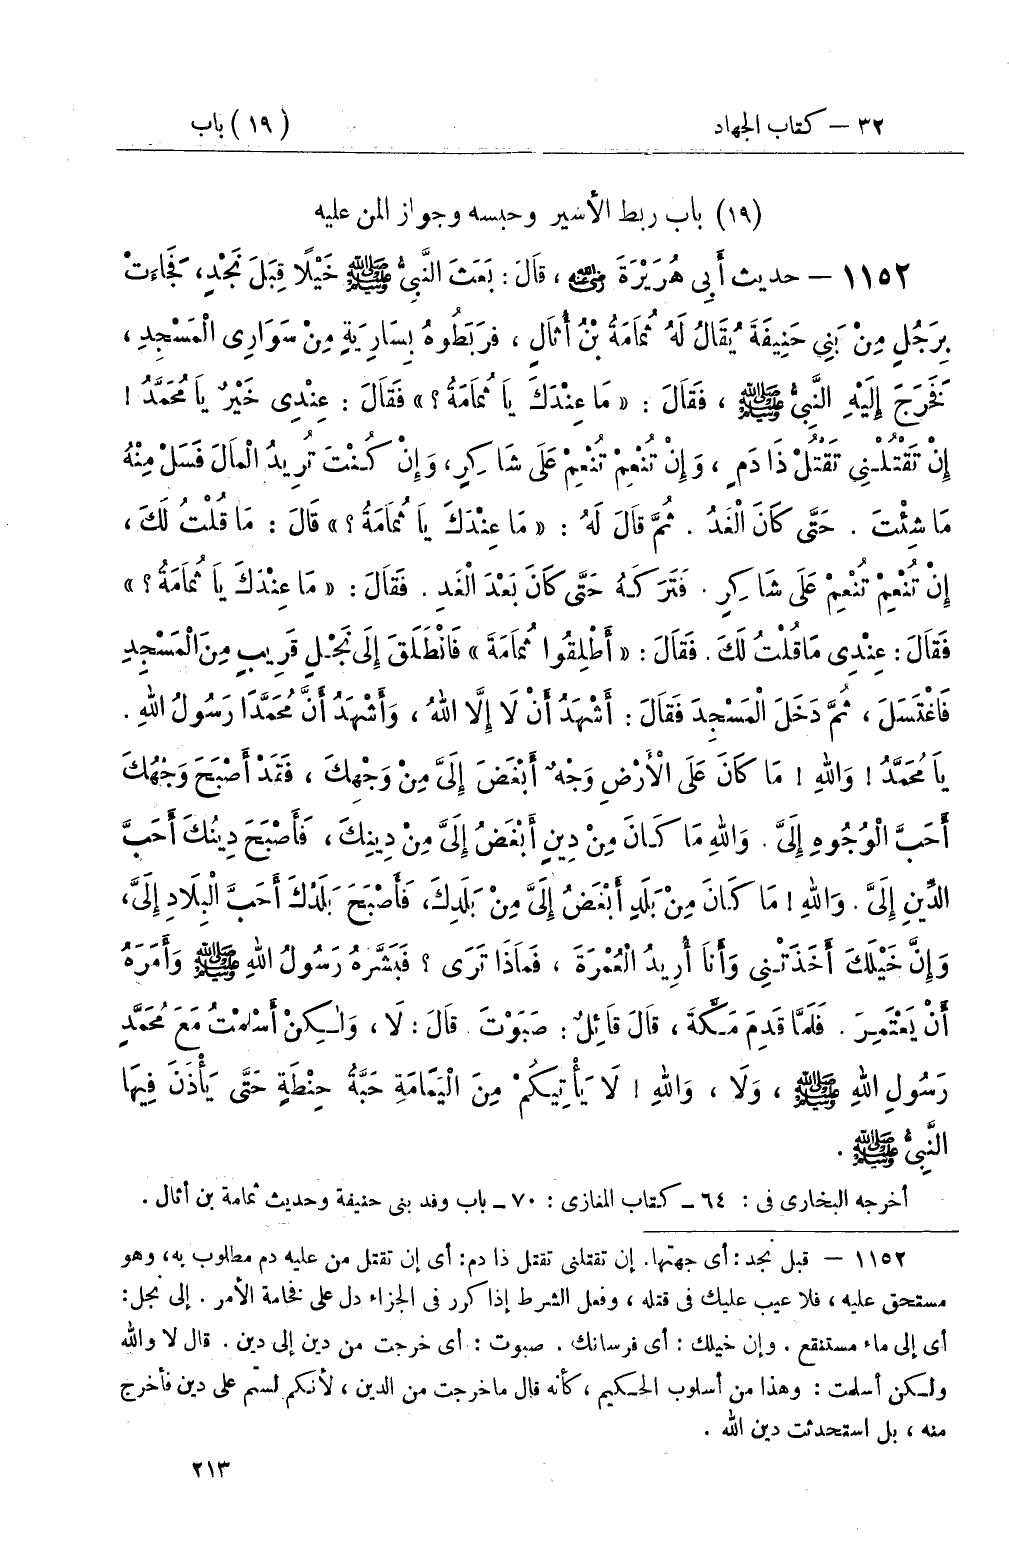 ٣٢ – كتاب الجهاد (١٩) باب
(١٩) باب ربط الأسير وحبسه وجواز المن عليه
١١٥٢ – حديث أَبِي هُرَيْرَةَ رضي الله عنه ، قَالَ : بَعَثَ النَّبِيُّ ﷺ خَيْلًا قِبَلَ نَجْدٍ، فَجَاءَتْ
بِرَجُلٍ مِنْ بَنِي حَنِيفَةَ يُقَالُ لَهُ ثُمَامَةُ بْنُ أُثَالٍ ، فَرَبَطُوهُ بِسَارِيَةٍ مِنْ سَوَارِى الْمَسْجِدِ ،
فَخَرَجَ إِلَيْهِ النَّبِيُّ ﷺ ، فَقَالَ : « مَا عِنْدَكَ يَا ثُمَامَةُ ؟ » فَقَالَ : عِنْدِى خَيْرٌ يَا مُحَمَّدُ !
إِنْ تَقْتُلْنِي تَقْتُلْ ذَا دَمٍ ، وَإِنْ تُنْعِمْ تُنْعِمْ عَلَى شَاكِرٍ، وَإِنْ كُنْتَ تُرِيدُ الْمَالَ فَسَلْ مِنْهُ
مَا شِئْتَ . حَتَّى كَانَ الْغَدُ . ثُمَّ قَالَ لَهُ : « مَا عِنْدَكَ يَا ثُمَامَةُ ؟ » قَالَ : مَا قُلْتُ لَكَ ،
إِنْ تُنْعِمْ تُنْعِمْ عَلَى شَاكِرٍ . فَتَرَكَهُ حَتَّى كَانَ بَعْدَ الْغَدِ . فَقَالَ : « مَا عِنْدَكَ يَا ثُمَامَةُ ؟ »
فَقَالَ : عِنْدِى مَا قُلْتُ لَكَ . فَقَالَ : « أَطْلِقُوا ثُمَامَةَ » فَانْطَلَقَ إِلَى نَجْلٍ قَرِيبٍ مِنَ الْمَسْجِدِ
فَاغْتَسَلَ ، ثُمَّ دَخَلَ الْمَسْجِدَ فَقَالَ : أَشْهَدُ أَنْ لَا إِلَّا اللهُ ، وَأَشْهَدُ أَنَّ مُحَمَّدًا رَسُولُ اللهِ .
يَا مُحَمَّدُ ! وَاللهِ ! مَا كَانَ عَلَى الْأَرْضِ وَجْهٌ أَبْغَضَ إِلَىَّ مِنْ وَجْهِكَ ، فَقَدْ أَصْبَحَ وَجْهُكَ
أَحَبَّ الْوُجُوهِ إِلَىَّ . وَاللهِ مَا كَانَ مِنْ دِينٍ أَبْغَضُ إِلَىَّ مِنْ دِينِكَ ، فَأَصْبَحَ دِينُكَ أَحَبَّ
الدِّينِ إِلَىَّ . وَاللهِ ! مَا كَانَ مِنْ بَلَدٍ أَبْغَضُ إِلَىَّ مِنْ بَلَدِكَ، فَأَصْبَحَ بَلَدُكَ أَحَبَّ الْبِلَادِ إِلَىَّ،
وَإِنَّ خَيْلَكَ أَخَذَتْنِي وَأَنَا أُرِيدُ الْعُمْرَةَ ، فَمَاذَا تَرَى ؟ فَبَشَّرَهُ رَسُولُ اللهِ ﷺ وَأَمَرَهُ
أَنْ يَعْتَمِرَ . فَلَمَّا قَدِمَ مَكَّةَ ، قَالَ قَائِلٌ : صَبَوْتَ . قَالَ : لَا ، وَلٰكِنْ أَسْلَمْتُ مَعَ مُحَمَّدٍ
رَسُولِ اللهِ ﷺ ، وَلَا ، وَاللهِ ! لَا يَأْتِيكُمْ مِنَ الْيَمَامَةِ حَبَّةُ حِنْطَةٍ حَتَّى يَأْذَنَ فِيهَا
النَّبِيُّ ﷺ .
أخرجه البخارى فى : ٦٤ ـ كتاب المغازى : ٧٠ ـ باب وفد بنى حنيفة وحديث ثمامة بن أثال .
١١٥٢ – قبل نجد : أى جهتها. إن تقتلنى تقتل ذا دم: أى إن تقتل من عليه دم مطلوب به، وهو
مستحق عليه ، فلا عيب عليك فى قتله ، وفعل الشرط إذا كرر فى الجزاء دل على فخامة الأمر . إلى نجل :
أى إلى ماء مستنقع . وإن خيلك : أى فرسانك . صبوت : أى خرجت من دين إلى دين . قال لا والله
ولكن أسلمت : وهذا من أسلوب الحكيم ، كأنه قال ما خرجت من الدين ، لأنكم لستم على دين فأخرج
منه ، بل استحدثت دين الله .
٢١٣